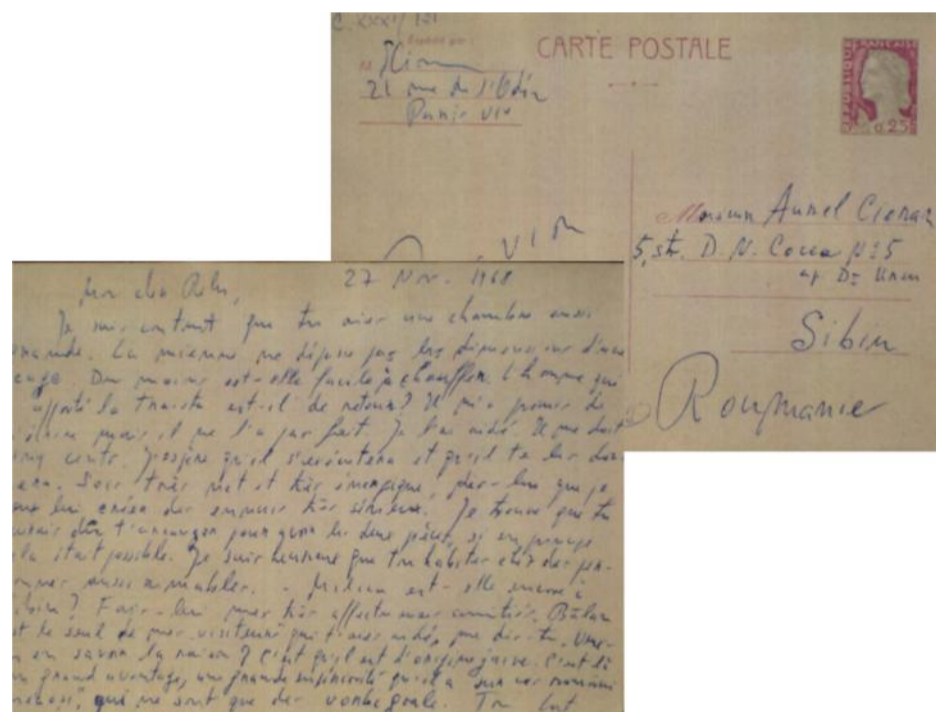 C. XXXI/
Expédié par :
M. ECioran
21 rue de l'Odéon
Paris VIe
CARTE POSTALE
REPUBLIQUE FRANÇAISE
0,25
Monsieur Aurel Cioran
5, str. D. N. Cocea N° 5
ap Dr
Sibiu
Roumanie
27 Nov. 1968
Mon cher Relu,
Je suis content que tu aies une chambre aussi
grande. La mienne ne dépasse pas les dimensions d'une
cage. Du moins est-elle facile à chauffer. L'homme qui
apporté la est-il de retour? Il m'a promis de
mais il ne l'a pas fait. Je l'ai aidé. Il me doit
cinq cents. J'espère qu'il s'exécutera et qu'il te les don-
nera. Sois très net et très énergique, dis-lui que je
lui créer des ennuis très sérieux. Je trouve que tu
aurais dû t'arranger pour avoir les deux pièces, si en principe
cela était possible. Je suis heureux que tu habites chez des per-
sonnes aussi aimables. - est-elle encore à
Sibiu? Fais-lui mes très affectueuses amitiés. Bălan
est le seul de mes visiteurs qui t'aies aidé, me dis-tu. Veux-
tu en savoir la raison? C'est qu'il est d'origine juive. C'est là
un grand avantage, une grande supériorité qu'il a sur nos
qui ne sont que des Ton but